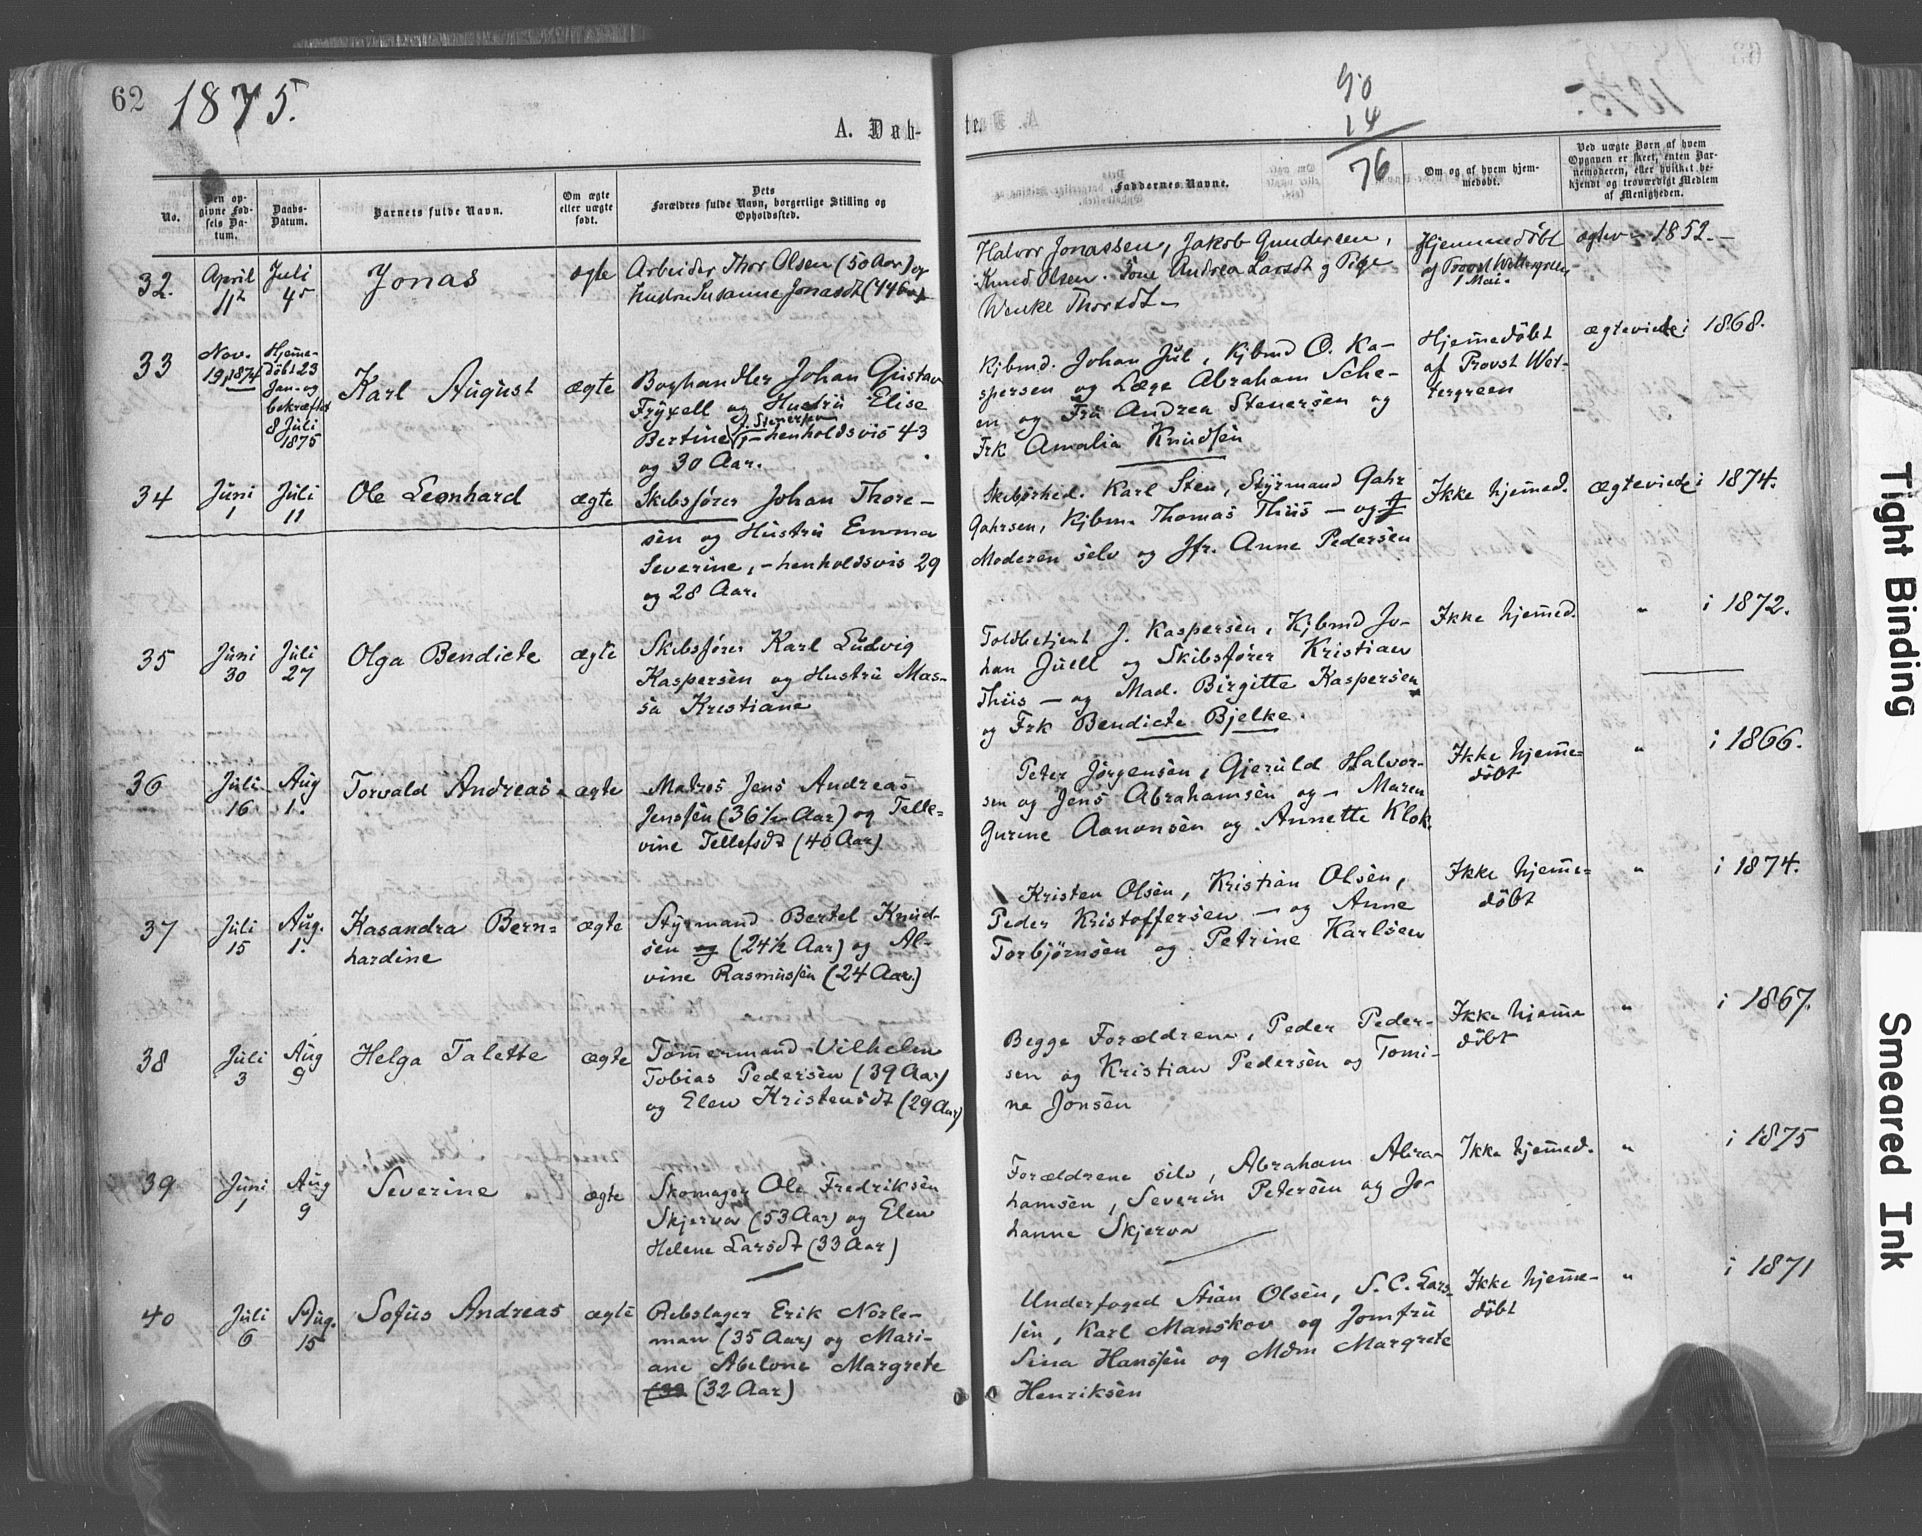 62
1875.
A. Døb-
No.
Den op-
givne Fød-
sels Da-
tum.
Daabs-
Datum.
Barnets fulde Navn.
Om ægte
eller uægte
født.
Dets
Forældres fulde Navn, borgerlige Stilling og
Opholdssted.
32.
April
11te
Juli
4
Jonas
ægte
Arbeider Thor Olsen (50 Aar) og
Hustru Susanne Jonasdt (44
33
Nov.
19, 1874
Hjemme-
døbt 23
Jan. og
bekræftet
8 Juli
1875
Karl August
ægte
Boghandler Johan Gustav
Fryxell og Hustru Elise
Bertine, f. Stenersen
- henholdsvis 43
og 30 Aar.
34
Juni
1
Juli
11
Ole Leonhard
ægte
Skibsfører Johan Thore-
sen og Hustru Emma
Severine, - henholdsvis 29
og 28 Aar.
35
Juni
30
Juli
27
Olga Bendicte
ægte
Skibsfører Karl Ludvig
Kaspersen og Hustru Mas-
sa Kristiane
36
Juli
16
Aug
1.
Torvald Andreas
ægte
Matros Jens Andreas
Jenssen (36½ Aar) og Telle-
vine Tellefsdt (40 Aar)
37
Juli
15
Aug.
1.
Kasandra Bern-
hardine
ægte
Styrmand Bertel Knud-
sen og (24½ Aar) og Al-
vine Rasmussen (24 Aar.)
38
Juli
3
Aug
9
Helga Talette
ægte
Tømmermand Vilhelm
Tobias Pedersen (39 Aar)
og Elen Kristensdt (29 Aar)
39
Juni
1
Aug
9
Severine
ægte
Skomager Ole Fredriksen
Skjerva (53 Aar) og Elen
Helene Larsdt (33 Aar)
40
Juli
6
Aug.
15
Sofus Andreas
ægte
Rebslager Erik Norle-
man (35 Aar) og Mari-
ane Abelone Margrete
(32 Aar)
te.
90
14
76
Faddernes Navne.
Om og af hvem hjem-
medøbt.
Ved uægte Børn af hvem
Opgaven er skeet, enten Bar-
nemoderen, eller hvilket be-
kjendt og troværdigt Medlem
af Menigheden.
Halvor Jonassen, Jakob Gundersen,
Knud Olsen. Tone Andrea Larsdt og Pige
Wenke Thorsdt -
Hjemmedøbt
af Provst Wettergreen
1 Mai.
1852.
Kjbmd. Johan Jul, Kjbmd O. Ka-
spersen og Læge Abraham Sche-
en og Fru Andrea Stenersen og
Frk Amalia Knudsen
Hjemmedøbt
af Provst Wet-
tergreen
ægteviede i 1868.
Skibsrhed. Karl Sten, Styrmand Gahr
Gahrsen, Kjbm. Thomas Thiis - og
Moderen selv og Jfr. Anne Pedersen
Ikke hjemmed.
ægteviede i 1874.
Toldbetjent J. Kaspersen, Kjbmd Jo-
han Juell og Skibsfører Kristian
Thiis - og Mad. Birgitte Kaspersen
og Frk Bendicte Bjelke.
Ikke hjemmed.
" i 1872.
Peter Jørgensen, Gjeruld Halvor-
sen og Jens Abrahamsen og - Maren
Gurine Aanonsen og Annette Klok.
Ikke hjemme-
døbt
" i 1866.
Kristen Olsen, Kristian Olsen,
Peder Kristoffersen - og Anne
Torbjørnsen og Petrine Karlsen
Ikke hjemme-
døbt
" i 1874.
Begge Forældrene, Peder Peder-
sen og Kristian Pedersen og Tomi-
ne Jonsen
Ikke hjemme
døbt
" i 1867.
Forældrene selv, Abraham Abra-
hamsen, Severin Petersen og Jo-
hanne Skjerva
Ikke hjemmed.
" i 1875
Underfoged Stian Olsen, S. C. Lars-
sen, Karl Manskov og Jomfru
Sina Hanssen og Mdm Margrete
Henriksen
Ikke hjemme-
døbt
" i 1871
Tight Binding
Smeared Ink